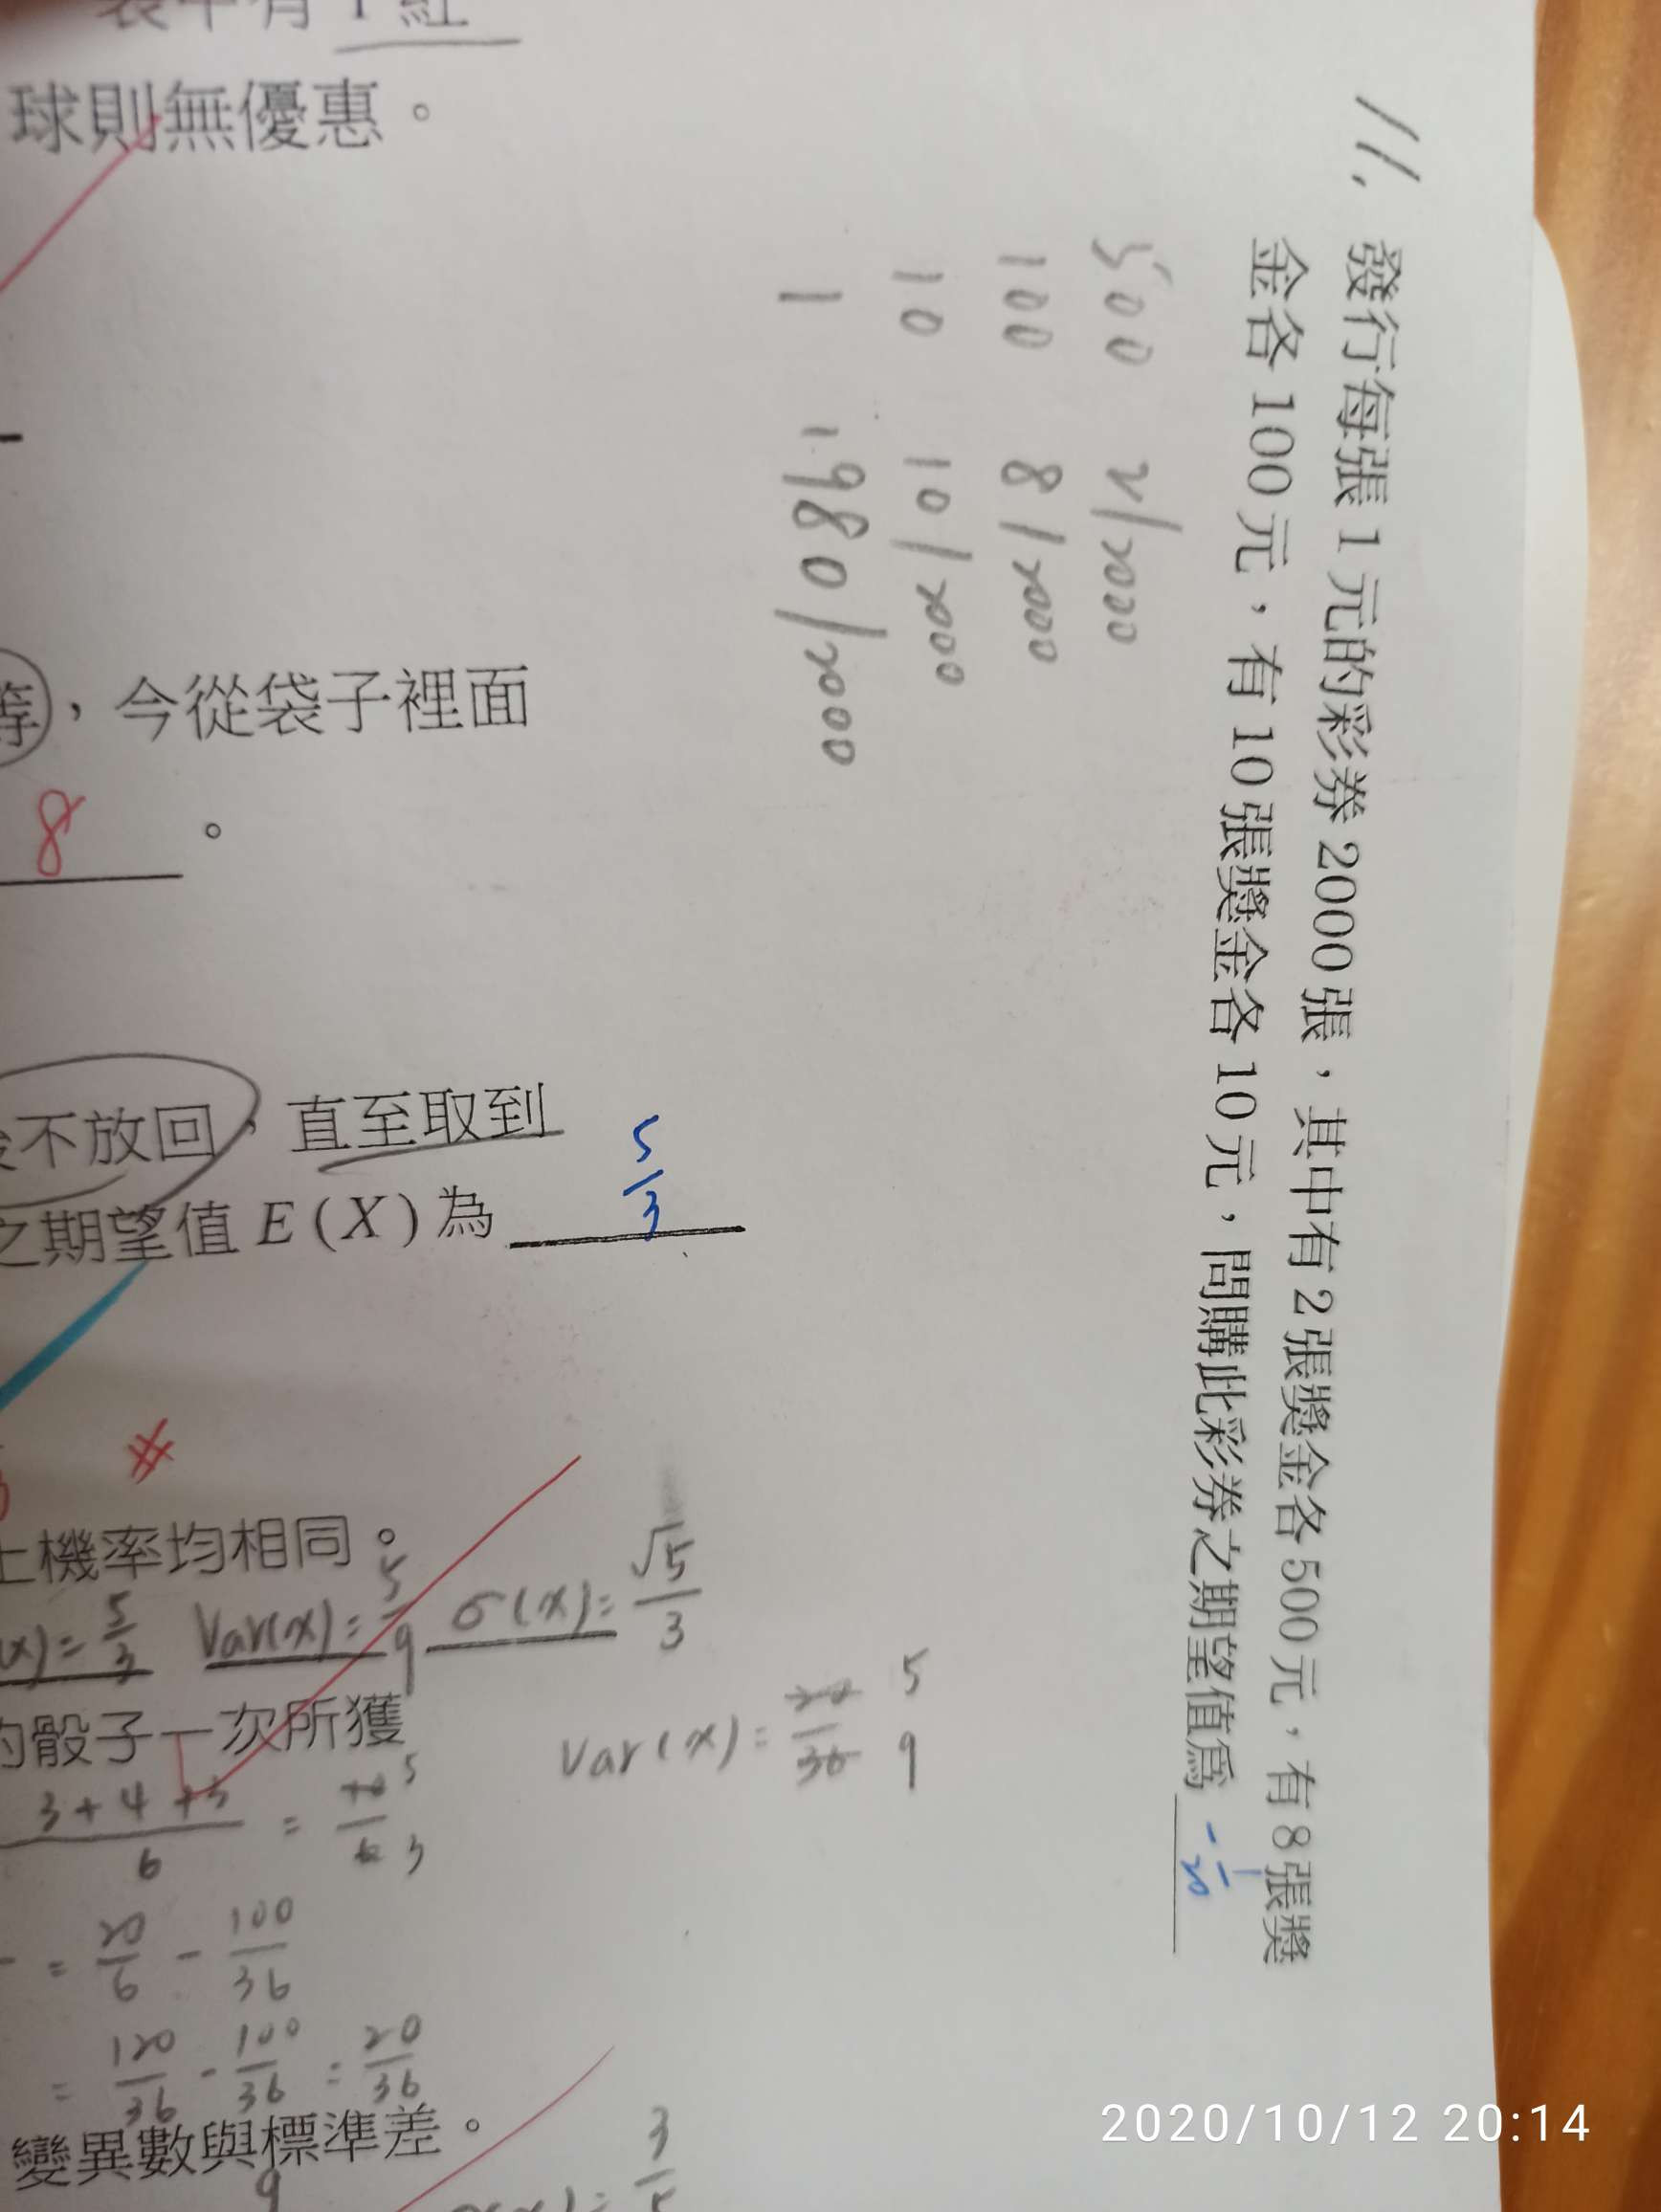 球則無優惠。
11. 發行每張 1 元的彩券 2000 張，其中有 2 張獎金各 500 元，有 8 張獎
金各 100 元，有 10 張獎金各 10 元，問購此彩券之期望值為 -1/20
500 2/2000
100 8/2000
10 10/2000
1 1980/2000
等，今從袋子裡面
8 。
不放回，直至取到
之期望值 E(X) 為 5/3
#
上機率均相同。
(x)= 5/3 Var(x)= 5/9 σ(x)= √5/3
Var(x)= 36 5 9
的骰子一次所獲
3+4+3/6 = 10/6 5 3
= 20/6 - 100/36
= 120/36 - 100/36 = 20/36
變異數與標準差。
9
3
2020/10/12 20:14